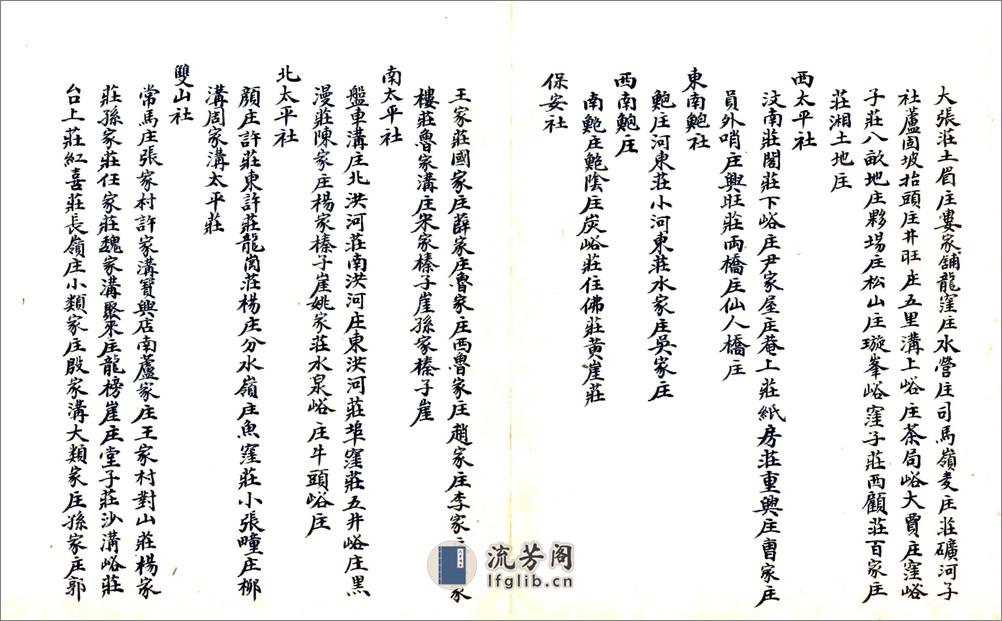 大張莊土眉庄婁家舖龍窪庄水營庄司馬嶺麦庄莊礦河子
社蘆固坡抬頭庄井旺庄五里溝上峪庄茶局峪大賈庄窪峪
子莊八畝地庄夥場庄松山庄璇峯峪窪子莊西顧莊百家庄
莊湘土地庄
西太平社
汶南莊閣莊下峪庄尹家屋庄菴上莊紙房莊重興庄曹家庄
員外哨庄興旺莊両橋庄仙人橋庄
東南鮑社
鮑庄河東莊小河東莊水家庄吳家庄
西南鮑庄
南鮑庄鮑陰庄炭峪莊住佛莊黃崖莊
保安社
王家莊國家庄薛家庄魯家庄西魯家庄趙家庄李家家
樓莊魯家溝庄宋家榛子崖孫家榛子崖
南太平社
盤車溝庄北洪河莊南洪河庄東洪河莊埠窪莊五井峪庄黑
漫莊陳家庄楊家榛子崖姚家莊水泉峪庄牛頭峪庄
北太平社
顏庄許莊東許莊龍崗莊楊庄分水嶺庄魚窪莊小張疃庄柳
溝周家溝太平莊
雙山社
常馬庄張家村許家溝寶興店南蘆家庄王家村對山莊楊家
莊孫家莊任家莊魏家溝聚來庄龍榜崖庄堂子莊沙溝峪莊
台上莊紅喜莊長嶺庄小類家庄殷家溝大類家庄孫家庄郭
流芳阁
lfglib.cn